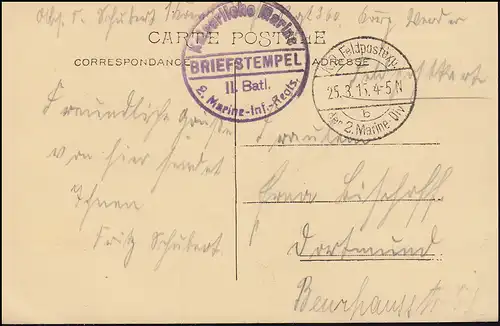 Abs. Schubert
CARTE POSTALE
CORRESPONDANCE ADRESSE
Kaiserliche Marine
BRIEFSTEMPEL
II. Batl.
2. Marine-Inf.-Regts.
Feldpostexp.
25.3.15. 4-5N
b
der 2. Marine-Div
Freundliche Grüße
von hier sendet
Ihnen
Fritz Schubert.
Fräulein
Erna Bischoff
Dortmund
Beurhausstr.